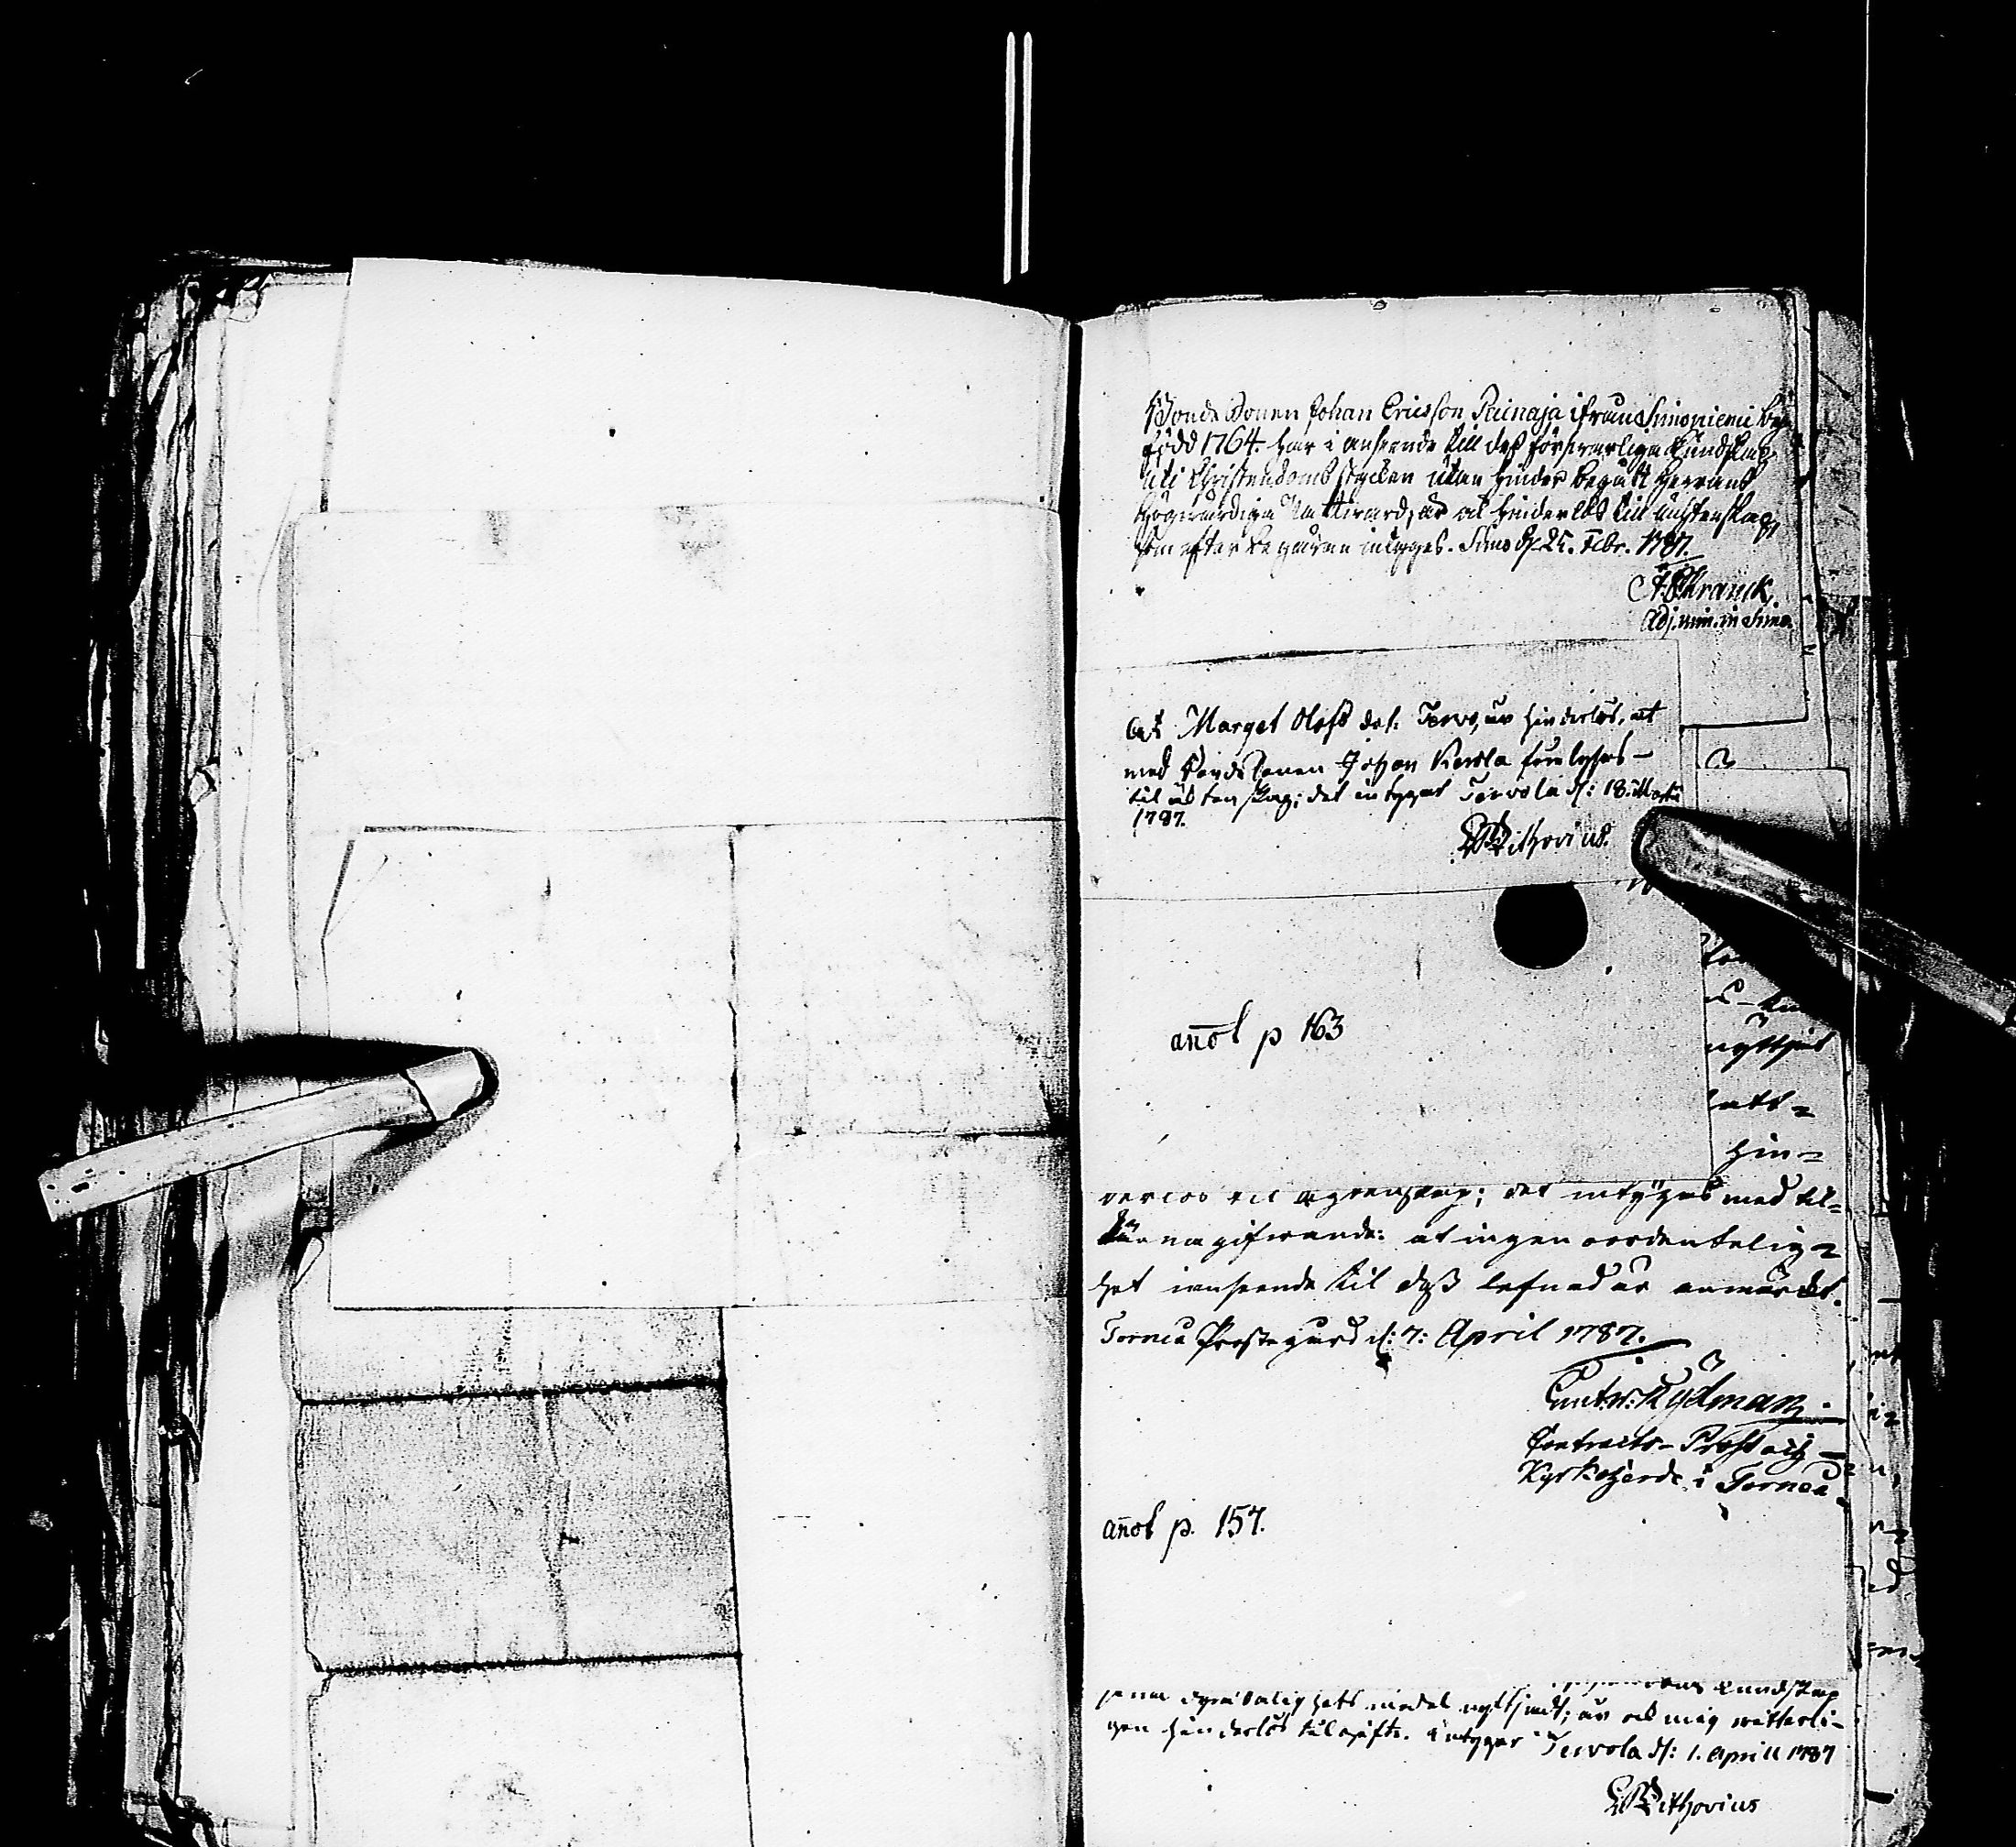 Bonde Sonen Johan Ericsson Painaja ifrån Simoniemi by
född 1764. har i anseende till dess försvarliga kundskap
uti Christendoms stycken utan hinder begått Herrans
Högvärdiga Nattvard, är ock hinderlös till ächtenskap,
som efter begäran intygas. Simo d. 25. Febr. 1787.
Kranck
Adj. min. in Simo
At Marget Olofs dot: Tervo, är hinderlös, at
med bonde Sonen Johan Kerola förelysas
til ächtenskap; det intygat Tervola d: 18. Martii
1787.
Vithovius.
anot p 163
nyttjat
hin=
til ägtenskap; det intÿgas med til=
känna gifwande: at ingen oordentelig=
het i anseende til dess lefnad är anmärckt.
Torneå Prostegård d: 7: April 1787.
Rydman
Contracts-Prost och
Kyrkoherde i Torneå
anot p. 157.
kundskap
salighets medel nyttjadt; är ock mig witterli-
gen hinderlös til gifte. intygar Tervola d: 1. April 1787
Vithovius